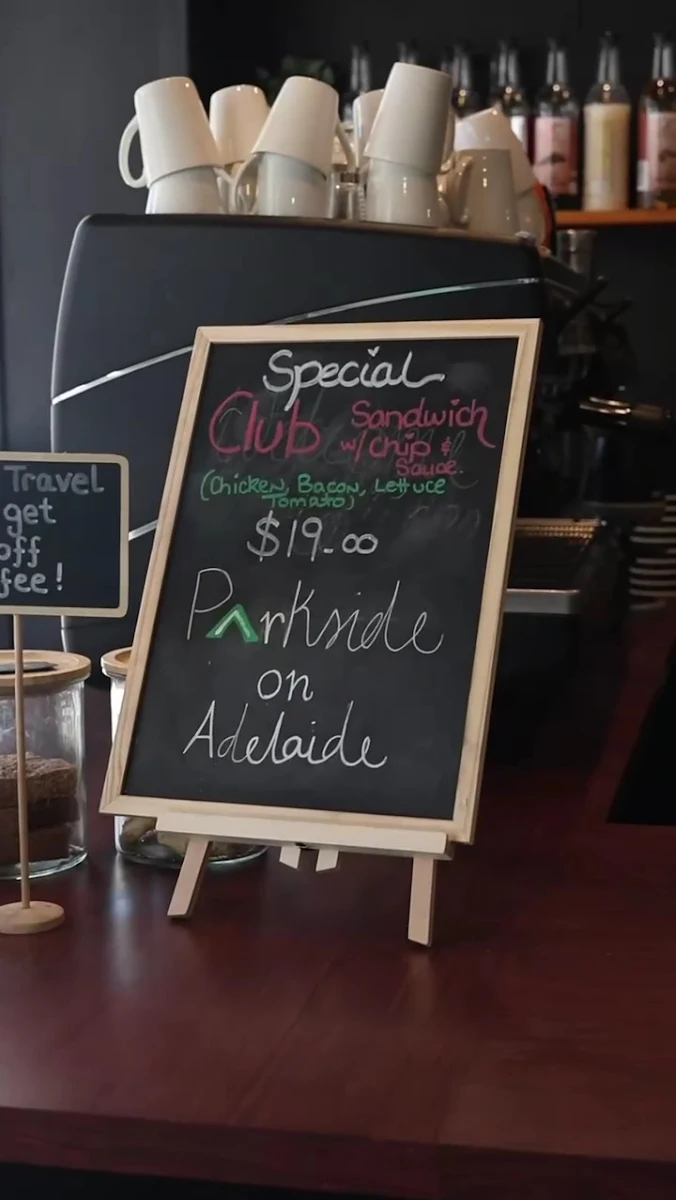 Special
Club Sandwich
w/ chip &
Sauce.
(Chicken, Bacon, Lettuce
Tomato)
$19.00
Parkside
on
Adelaide
Travel
get
off
fee!